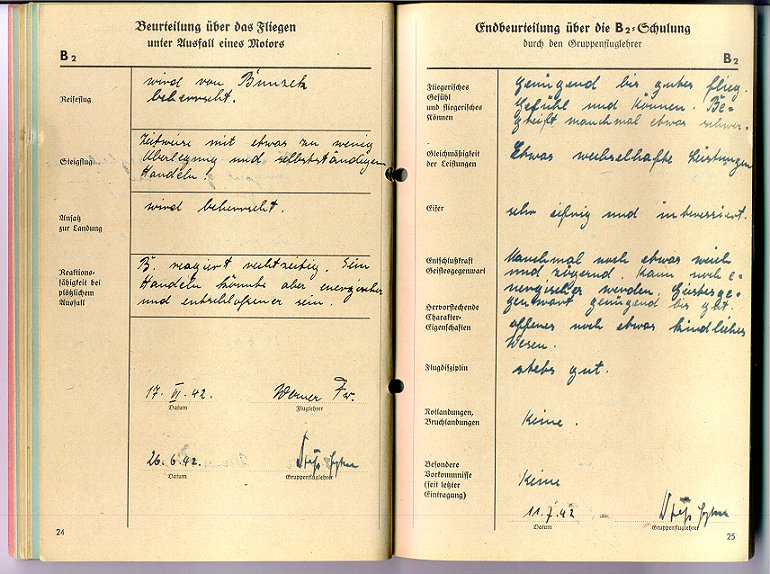 Beurteilung über das Fliegen
unter Ausfall eines Motors
B2
Reiseflug
wird von Bunzek
beherrscht.
Steigflug
Zeitweise mit etwas zu wenig
Überlegung und selbstständigem
Handeln!
Ansatz
zur Landung
wird beherrscht.
Reaktions-
fähigkeit bei
plötzlichem
Ausfall
B. reagiert rechtzeitig. Sein
Handeln könnte aber energischer
und entschlossener sein.
17. VI. 42. Werner Fw.
Datum Fluglehrer
26.6.42.
Datum Gruppenfluglehrer
24
Endbeurteilung über die B2=Schulung
durch den Gruppenfluglehrer
B2
Fliegerisches
Gefühl
und fliegerisches
Können
Genügend bis gutes flieg.
Gefühl und Können. Be-
greift manchmal etwas schwer.
Gleichmäßigkeit
der Leistungen
Etwas wechselhafte Leistungen
Eifer
sehr eifrig und interessiert.
Entschlußkraft
Geistesgegenwart
Manchmal noch etwas weich
und zögernd. Kann noch e-
nergischer werden. Geistesge-
genwart genügend bis gut.
Hervorstechende
Charakter-
Eigenschaften
offenes noch etwas kindliches
Wesen.
Flugdisziplin
stets gut.
Notlandungen,
Bruchlandungen
Keine.
Besondere
Vorkommnisse
(seit letzter
Eintragung)
Keine
11.7.42
Datum Gruppenfluglehrer
25